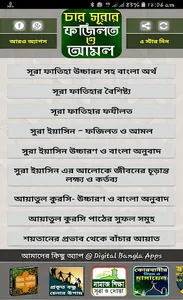 চার সূরার
ফজিলত
ও
আমল
আরও অ্যাপস
৫ স্টার দিন
সূরা ফাতিহা উচ্চারন সহ বাংলা অর্থ
সূরা ফাতিহার বৈশিষ্ট্য
সূরা ফাতিহার ফযীলত
সূরা ইয়াসিন - ফজিলত ও আমল
সূরা ইয়াসিন উচ্চারণ ও বাংলা অনুবাদ
সূরা ইয়াসিন এর আলোকে জীবনের চূড়ান্ত
লক্ষ্য ও কর্তব্য
আয়াতুল কুরসি- উচ্চারণ ও বাংলা অনুবাদ
আয়াতুল কুরসি পাঠের সুফল সমূহ
শয়তানের প্রভাব থেকে বাঁচার আয়াত
আমাদের কিছু অ্যাপ @ Digital Bangla Apps
নামাজ শিক্ষা
সূরা ও দোয়া
কোরবানীর